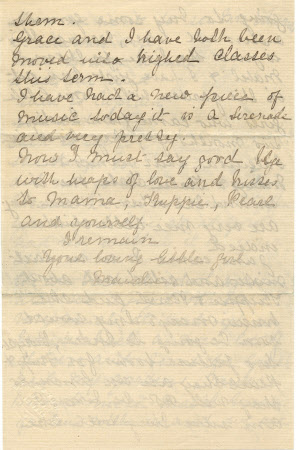 them.
Grace and I have both been
moved into higher classes
this term.
I have had a new piece of
music today it is a serenade
and very pretty.
Now I must say good bye
with heaps of love and kisses
to Mama, Puppie, Pearl
and yourself
I remain
Your loving little girl